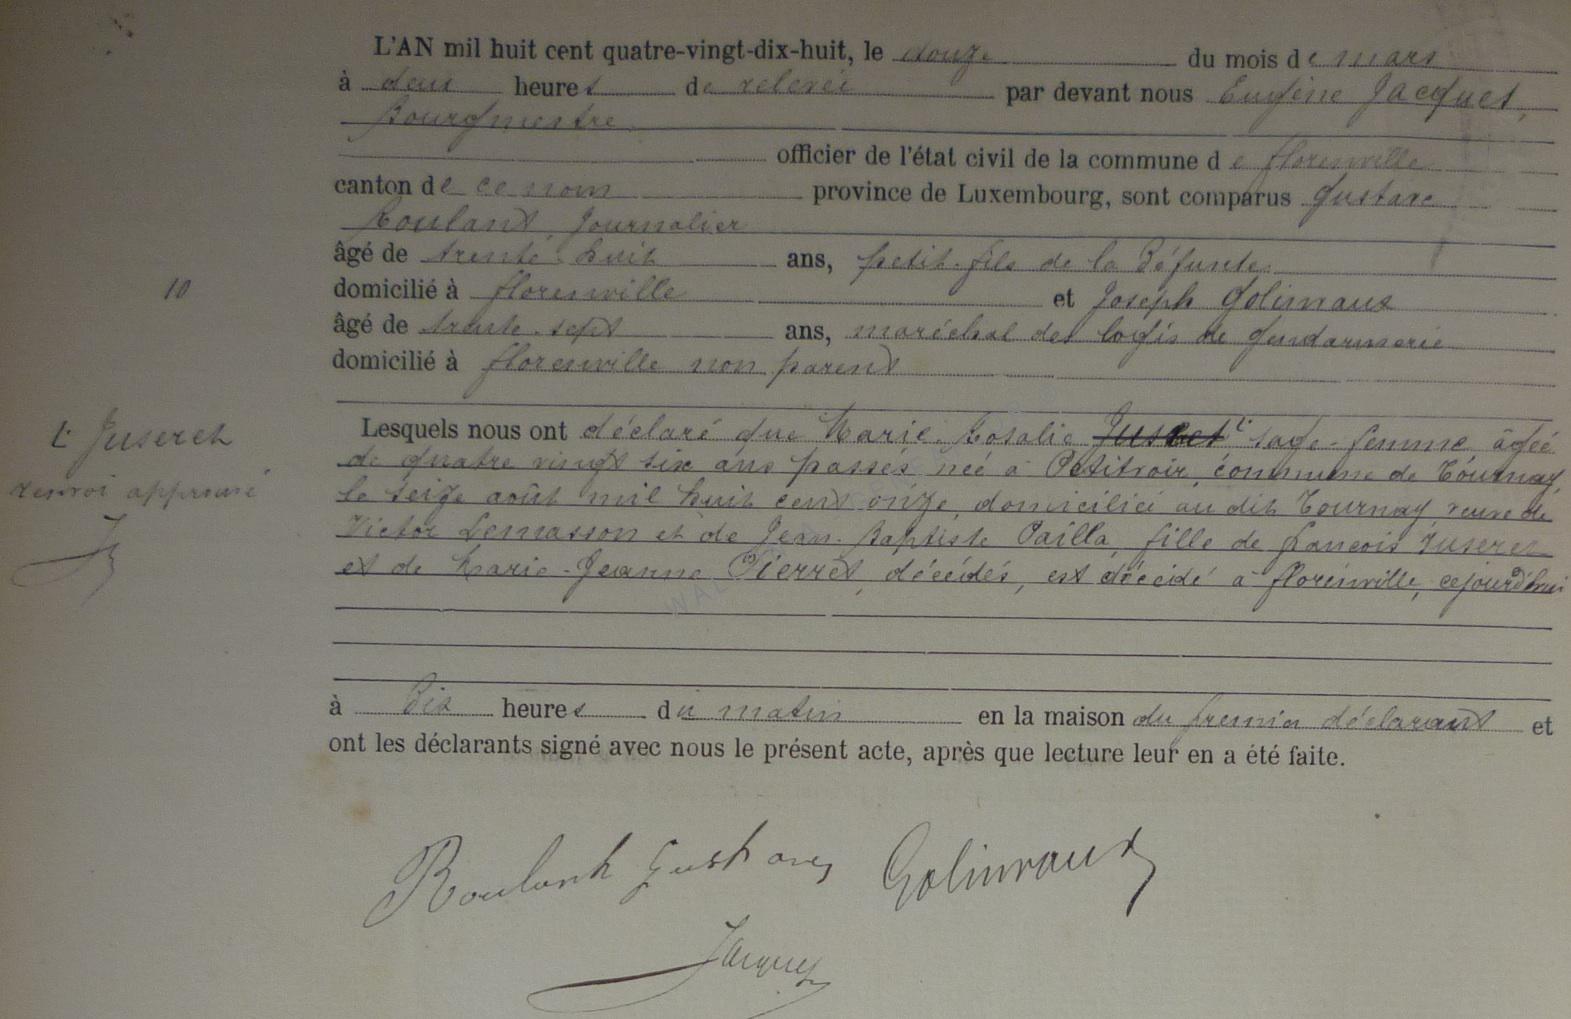 L'AN mil huit cent quatre-vingt-dix-huit, le douze du mois de mars
à deux heures de relevée par devant nous Eugène Jacques,
Bourgmestre
officier de l'état civil de la commune de florenville
canton de ce nom province de Luxembourg, sont comparus Gustave
Roulant, Journalier
âgé de trente huit ans, petit-fils de la Défunte
10
domicilié à florenville et Joseph Golinvaux
âgé de trente-sept ans, maréchal des logis de gendarmerie
domicilié à florenville non parent
Lesquels nous ont déclaré que Marie-Rosalie Juseret sage-femme âgée
Juseret
de quatre vingt six ans passés née à Petitvoir, commune de Tournay,
renvoi approuvé
le seize août mil huit cent onze, domiciliée au dit Tournay, veuve de
Victor Lemasson et de Jean-Baptiste Pailla, fille de francois Juseret
et de Marie-Jeanne Pierret, décédés, est décédé à florenville, cejourd'hui
à dix heures du matin en la maison du premier déclarant et
ont les déclarants signé avec nous le présent acte, après que lecture leur en a été faite.
Roulant Gustave Golinvaux
Jacques